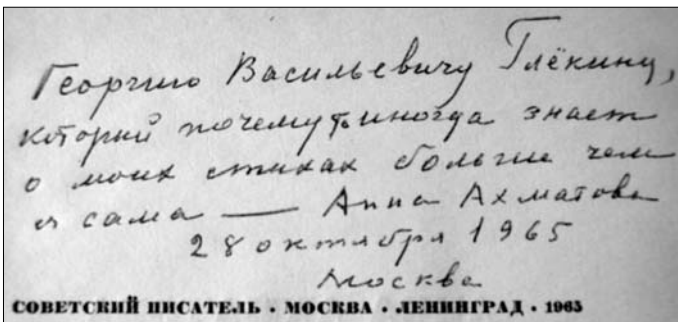 Георгию Васильевичу Глёкину,
который почему-то иногда знает
о моих стихах больше чем
я сама — Анна Ахматова
28 октября 1965
Москва
СОВЕТСКИЙ ПИСАТЕЛЬ · МОСКВА · ЛЕНИНГРАД · 1965